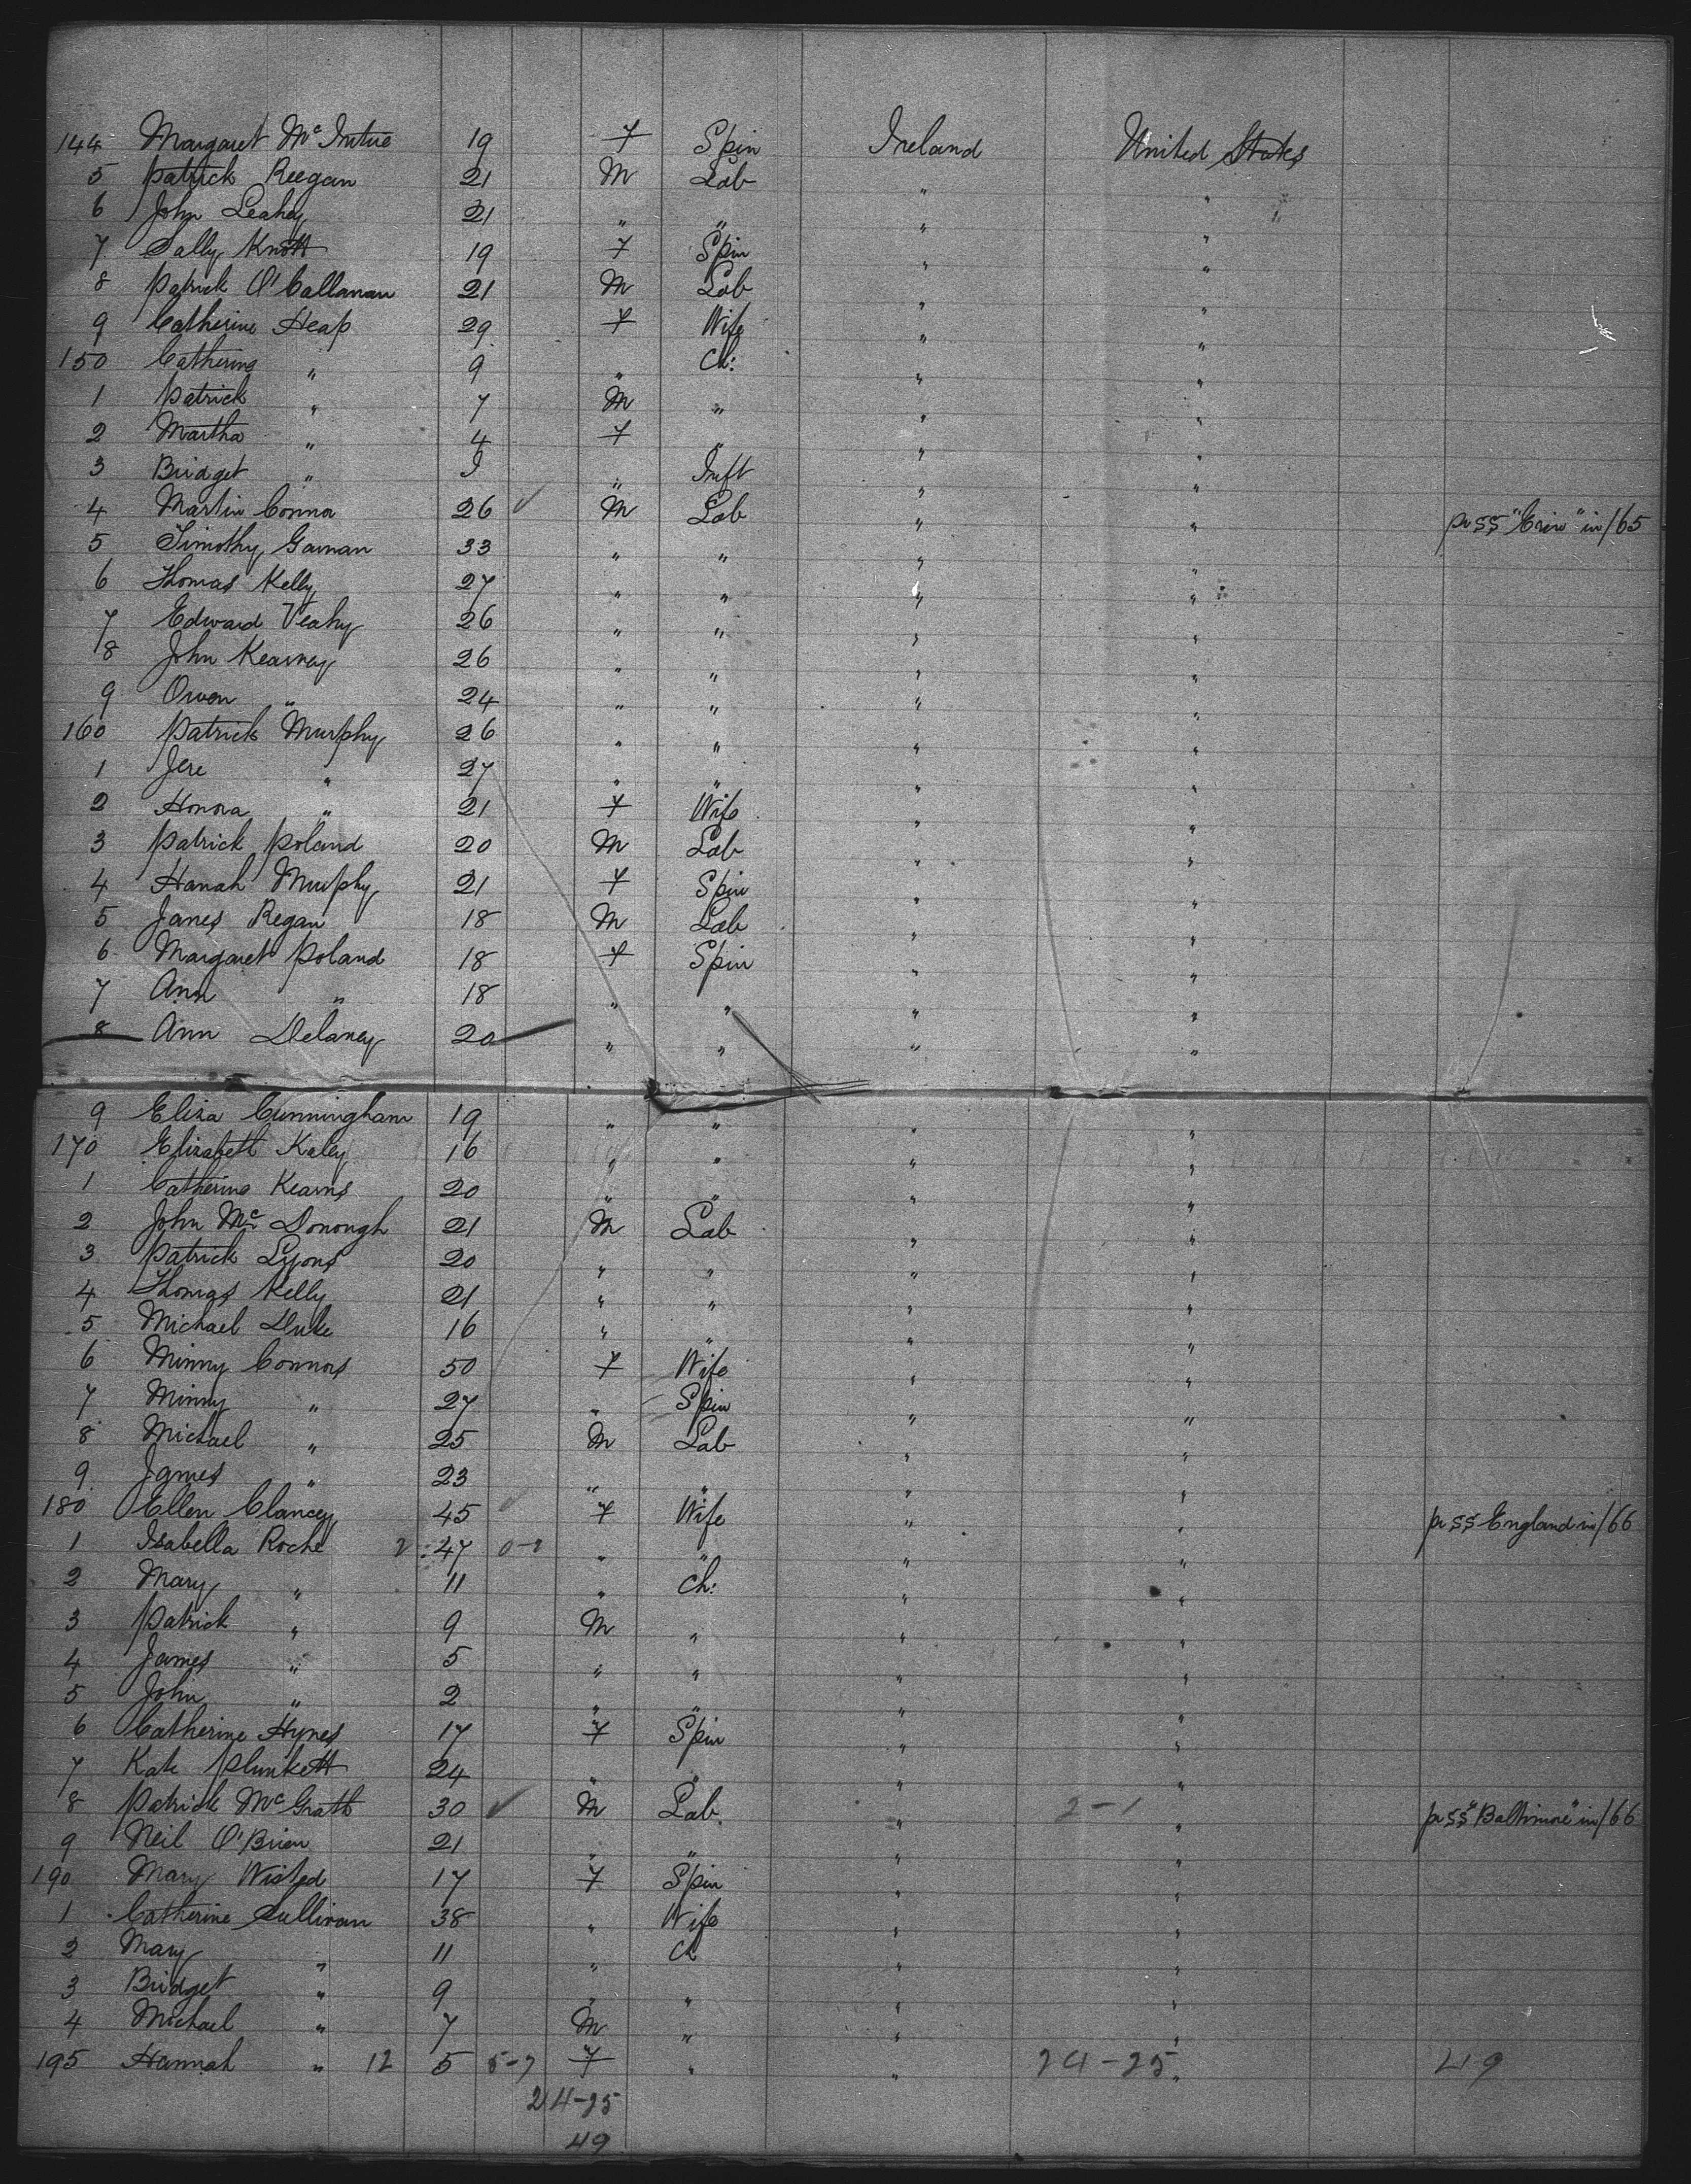 144 Margaret Mc Intire 19 F Spin Ireland United States
5 Patrick Reegan 21 M Lab " "
6 John Leahy 21 " " " "
7 Sally Knott 19 F Spin " "
8 Patrick O'Callanan 21 M Lab " "
9 Catherine Heap 29 F Wife " "
150 Catherine " 9 " Ch: " "
1 Patrick " 7 M " " "
2 Martha " 4 F " " "
3 Bridget " I " Inft " "
4 Martin Connor 26 ✓ M Lab " " pr SS "Erin" in /65
5 Timothy 33 " " " "
6 Thomas Kelly 27 " " " "
7 Edward Veahy 26 " " " "
8 John Kearney 26 " " " "
9 Owen " 24 " " " "
160 Patrick Murphy 26 " " " "
1 Jere " 27 " " " "
2 Honora " 21 F Wife " "
3 Patrick Poland 20 M Lab " "
4 Hanah Murphy 21 F Spin " "
5 James Regan 18 M Lab " "
6 Margaret Poland 18 F Spin " "
7 Ann " 18 " " " "
8 Ann Delaney 20 " " " "
9 Eliza Cunningham 19 " " " "
170 Elizabeth Kaley 16 " " " "
1 Catherine Kearns 20 " " " "
2 John Mc Donough 21 M Lab " "
3 Patrick Lyons 20 " " " "
4 Thomas Kelly 21 " " " "
5 Michael Duke 16 " " " "
6 Minny Connors 50 F Wife " "
7 Minny " 27 " Spin " "
8 Michael " 25 M Lab " "
9 James " 23 " " " "
180 Ellen Clancey 45 ✓ F Wife " " pr SS England in /66
1 Isabella Roche 47 " " " "
2 Mary " 11 " Ch: " "
3 Patrick " 9 M " " "
4 James " 5 " " " "
5 John " 2 " " " "
6 Catherine Hynes 17 F Spin " "
7 Kate Plunkett 24 " " " "
8 Patrick Mc Grath 30 ✓ M Lab " 2-1 " pr SS "Baltimore" in /66
9 Neil O'Brien 21 " " " "
190 Mary Wisted 17 F Spin " "
1 Catherine Sullivan 38 " Wife " "
2 Mary " 11 " Ch " "
3 Bridget " 9 " " " "
4 Michael " 7 M " " "
195 Hannah " 12 5 5-7 F " " 24-25 " 49
24-25
49